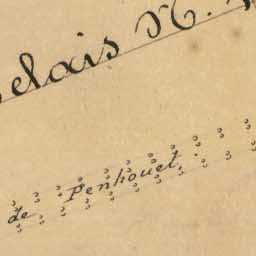 elais N.
de Penhouet.